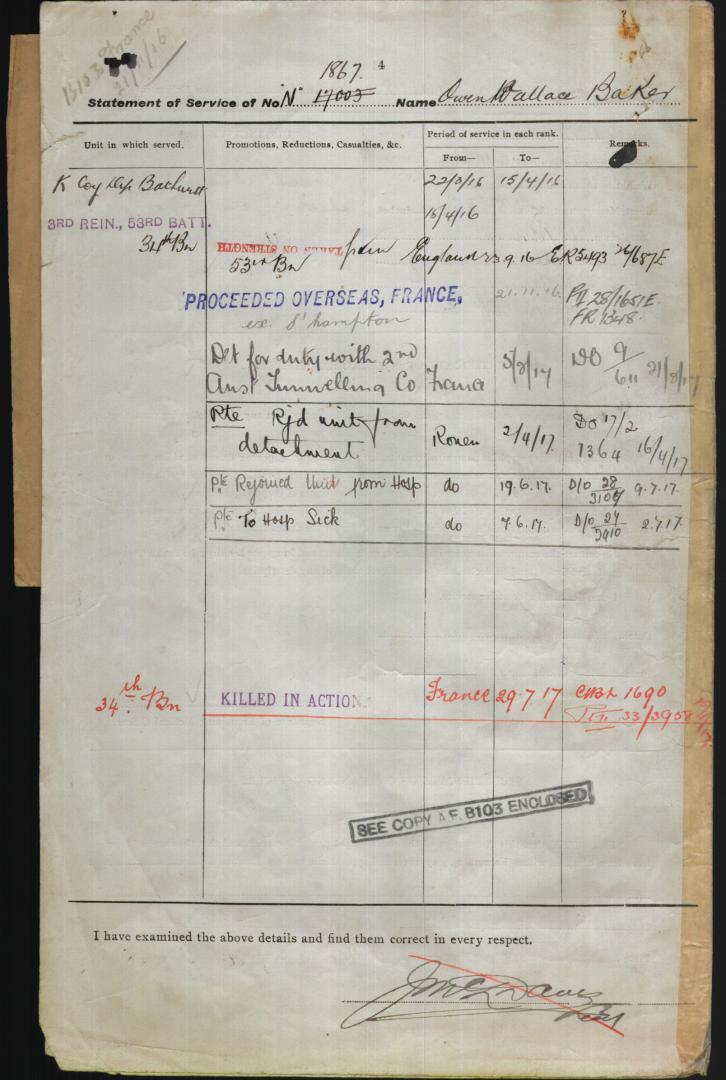 B103 France
21/11/16
1867. 4
Statement of Service of No "N" 17003 Name Owen Wallace Baker
Unit in which served. Promotions, Reductions, Casualties, &c. Period of service in each rank. Remarks.
From— To—
K Coy Dep Bathurst 22/3/16 15/4/16
3RD REIN., 53RD BATT. 16/4/16
34th Bn TAKEN ON STRENGTH from England 23.9.16 ER 5493 26/687E
53rd Bn
PROCEEDED OVERSEAS, FRANCE, 21.11.16. 28/1651E
ex. S'hampton FR 1348.
Det for duty with 2nd DO 9/611 21/3/17
Aust Tunnelling Co France
Pte Rjd unit from Rouen 2/4/17. DO 17/2
detachment 1364 16/4/17
Pte Rejoined Unit from Hosp do 19.6.17. D/O 28 9.7.17.
Pte To Hosp Sick do 7.6.17. D/O 27/2910 2.7.17
34th Bn KILLED IN ACTION. France 29.7.17 1690
33/3958
SEE COPY A.F. B103 ENCLOSED
I have examined the above details and find them correct in every respect.